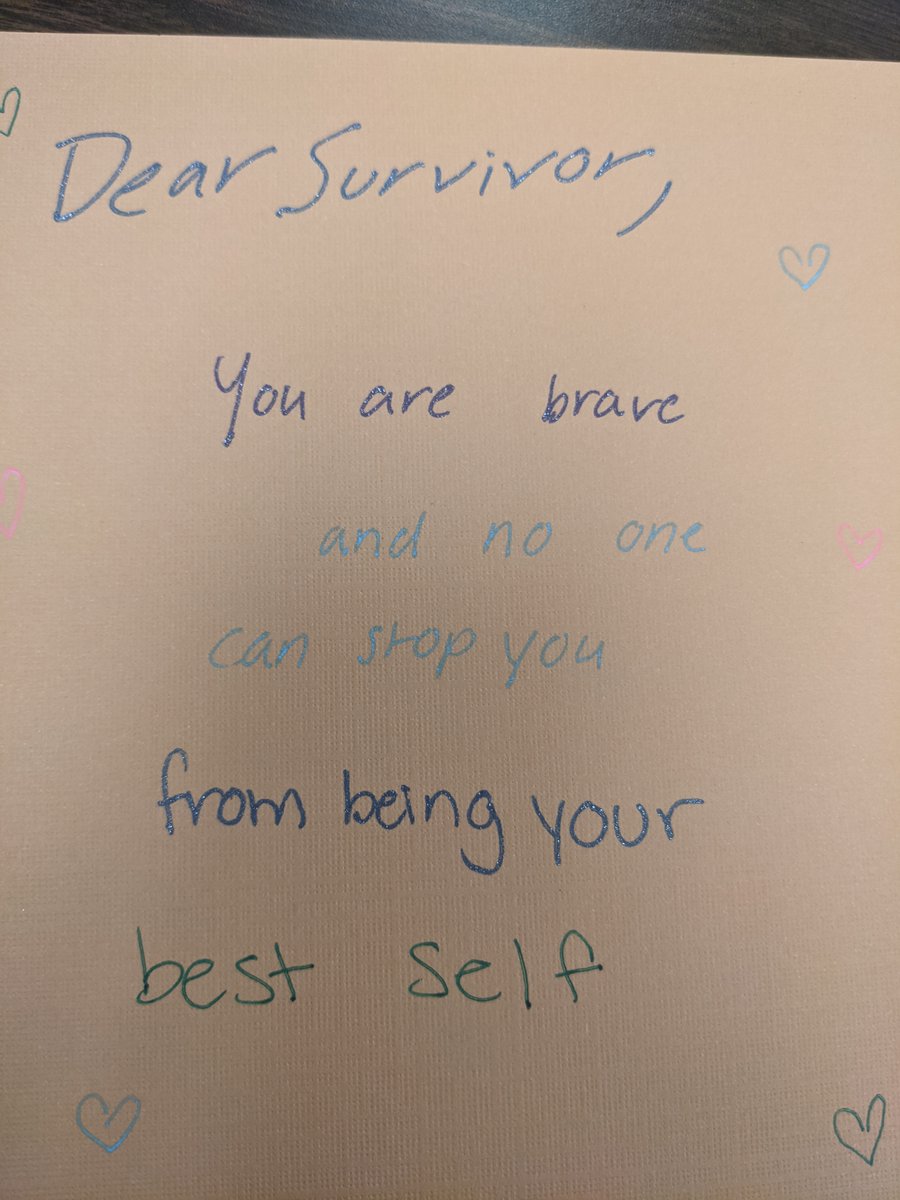 Dear Survivor,
You are brave
and no one
can stop you
from being your
best self